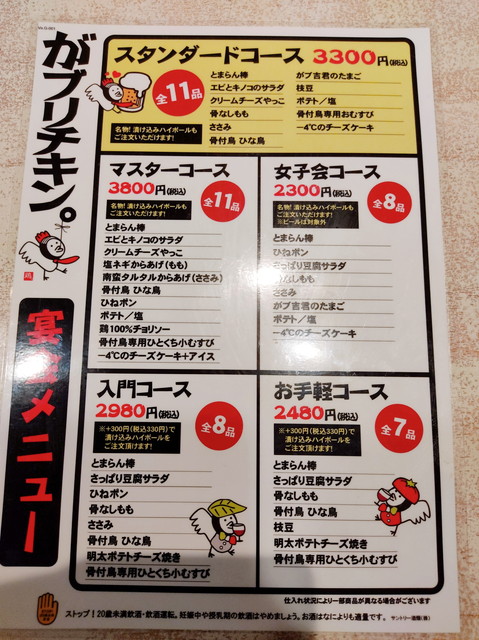 がブリチキン。
宴会メニュー
スタンダードコース 3300円(税込)
全11品
名物!漬け込みハイボールも
ご注文いただけます!
とまらん棒
エビとキノコのサラダ
クリームチーズやっこ
骨なしもも
ささみ
骨付鳥 ひな鳥
がブ吉君のたまご
枝豆
ポテト/塩
骨付鳥専用おむすび
−4℃のチーズケーキ
マスターコース
3800円(税込)
全11品
名物!漬け込みハイボールも
ご注文いただけます!
とまらん棒
エビとキノコのサラダ
クリームチーズやっこ
塩ネギからあげ(もも)
南蛮タルタルからあげ(ささみ)
骨付鳥 ひな鳥
ひねポン
ポテト/塩
鶏100%チョリソー
骨付鳥専用ひとくち小むすび
−4℃のチーズケーキ+アイス
女子会コース
2300円(税込)
全8品
名物!漬け込みハイボールも
ご注文いただけます!
※ビールは対象外
とまらん棒
ひねポン
さっぱり豆腐サラダ
骨なしもも
ささみ
がブ吉君のたまご
ポテト/塩
−4℃のチーズケーキ
入門コース
2980円(税込)
全8品
※+300円(税込330円)で
漬け込みハイボールを
ご注文頂けます!
とまらん棒
さっぱり豆腐サラダ
ひねポン
骨なしもも
ささみ
骨付鳥 ひな鳥
明太ポテトチーズ焼き
骨付鳥専用ひとくち小むすび
お手軽コース
2480円(税込)
全7品
※+300円(税込330円)で
漬け込みハイボールを
ご注文頂けます!
とまらん棒
さっぱり豆腐サラダ
骨なしもも
骨付鳥 ひな鳥
枝豆
明太ポテトチーズ焼き
骨付鳥専用ひとくち小むすび
仕入れ状況により一部商品が異なる場合がございます
ストップ!20歳未満飲酒・飲酒運転。妊娠中や授乳期の飲酒はやめましょう。お酒はなによりも適量です。 サントリー酒類(株)